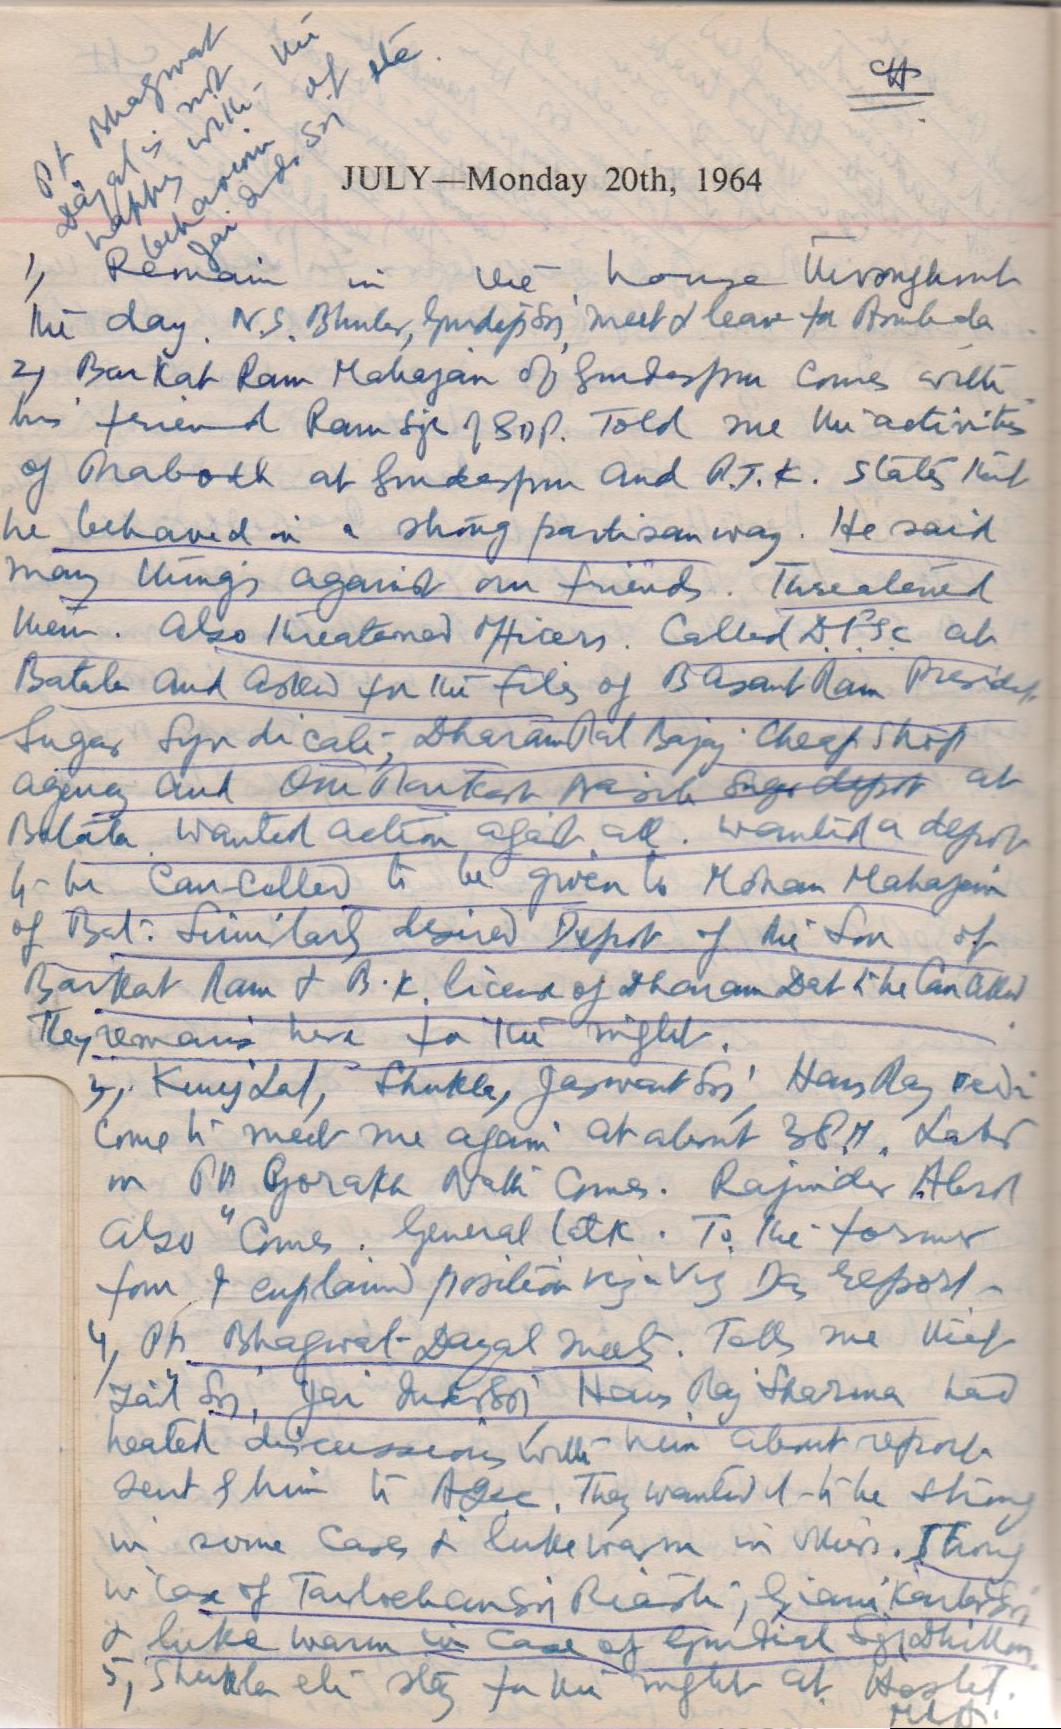 CH
Pt Bhagwat
Dayal is not
happy with the
behaviour of
Jai Inder Sñ etc.
JULY—Monday 20th, 1964
1, Remain in the house throughout
the day. N.S. Bhuler, Gurdip Sñ, meet & leave for Ambala
2, Barkat Ram Mahajan of Gurdaspur comes with
his friend Ram Sgh of GDP. Told me the activities
of Prabodh at Gurdaspur and P.T.K. States that
he behaved in a strong partisan way. He said
many things against our friends. Threatened
them. Also threatened officers. Called D.F.S.C at
Batala and asked for the files of Basant Ram President
Sugar Syndicate, Dharam Pal Bajaj Cheap Shop
agency and Om Parkash at
Batala. Wanted action against all. Wanted a depot
to be cancelled to be given to Mohan Mahajan
of Bat: Similarly desired Depot of the Son of
Barkat Ram & B.K. licence of Dharam Dat to be Cancelled
They remain here for the night.
3, Kunj Lal, Shukla, Jaswant Sñ, Hans Raj
come to meet me again at about 3 P.M. Later
on Pt Gorakh Nath comes. Rajinder Abrol
also " Comes. General talk. To the former
four I explained position vis a vis Das report -
4, Pt Bhagwat Dayal meets. Tells me that
Zail Sñ, Jai Inder Sñ Hans Raj Sharma had
heated discussions with him about report
sent by him to AICC. They wanted it to be strong
in some cases & luke warm in others. Strong
in case of Tarlochan Sñ Riasti, Giani Kartar Sñ
& luke warm in case of Gurdial Sgh Dhillon.
5, Shukla etc stay for the night at Hostel.
MLA.